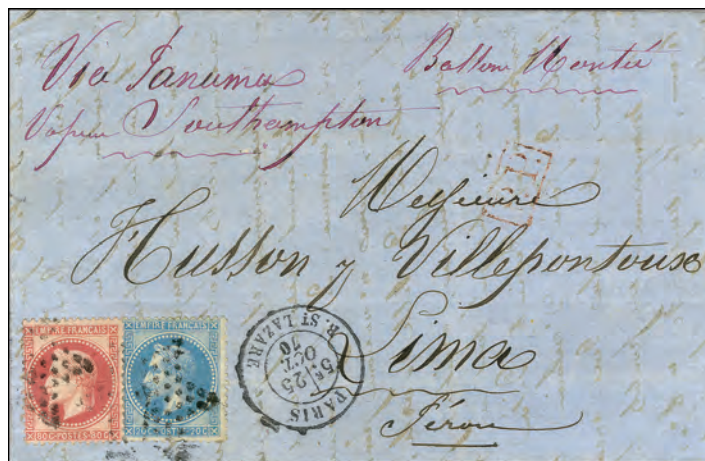 Via Panama
Ballon Monté
Vapeur Southampton
P.P.
Messieurs
Husson y Villepontoux
Lima
Pérou
EMPIRE FRANÇAIS
80 C·POSTES·80 C
EMPIRE FRANÇAIS
20 C·POSTES·20 C
PARIS
R. ST LAZARE
5E 25
OCT
70